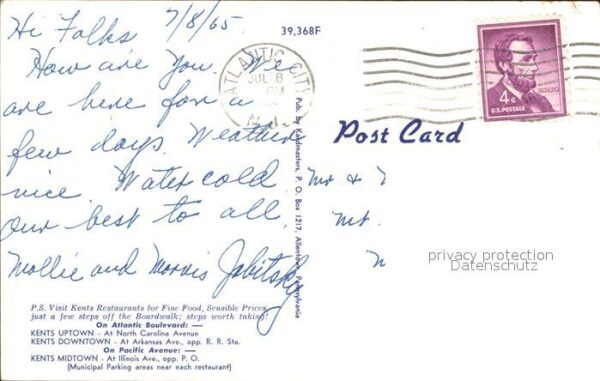 7/8/65
Hi Folks
How are you. We
are here for a
few days. Weather
nice. Water cold
Our best to all.
Mollie and Morris Jabitsky
39,368F
ATLANTIC CITY
JUL 8
PM
N.J.
LINCOLN
4¢
U.S. POSTAGE
Post Card
Pub. by Kardmasters, P. O. Box 1217, Allentown, Pennsylvania
Mr &
Mt.
N
privacy protection
Datenschutz
P.S. Visit Kents Restaurants for Fine Food, Sensible Prices,
just a few steps off the Boardwalk; steps worth taking!
On Atlantic Boulevard: —
KENTS UPTOWN - At North Carolina Avenue
KENTS DOWNTOWN - At Arkansas Ave., opp. R. R. Sta.
On Pacific Avenue: —
KENTS MIDTOWN - At Illinois Ave., opp. P. O.
(Municipal Parking areas near each restaurant)